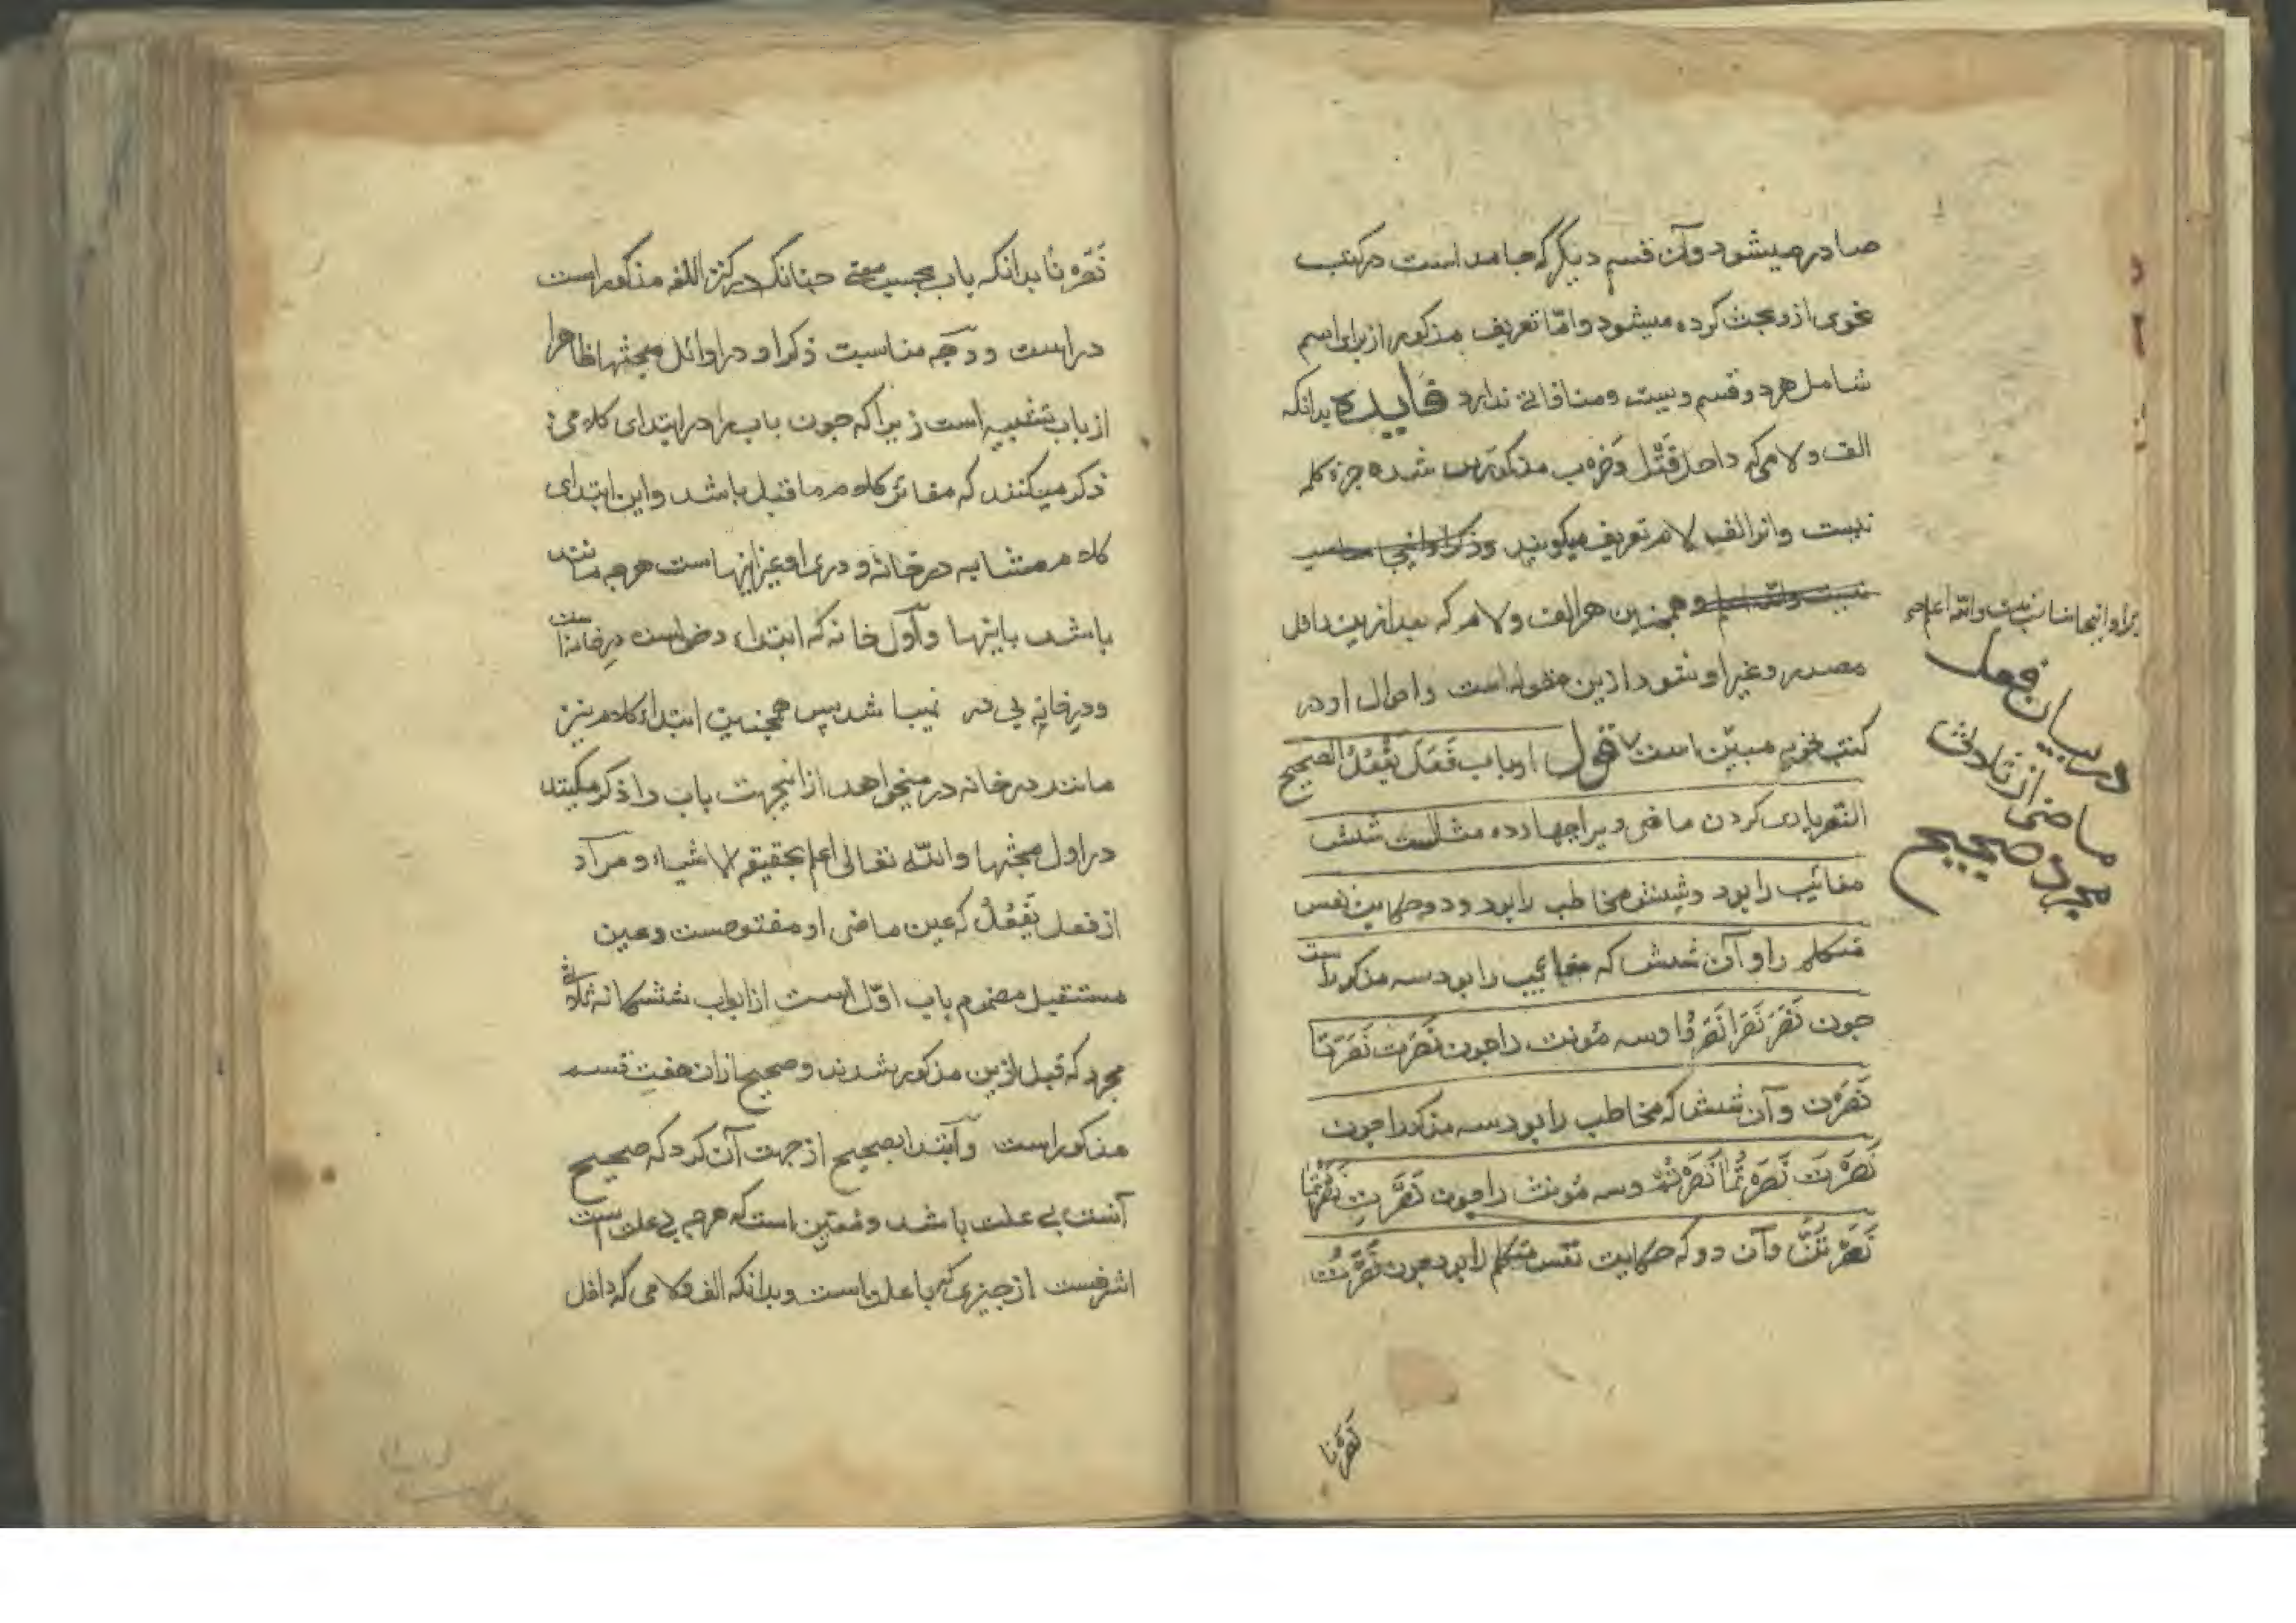 صادر میشود و آن قسم دیگر که جامد است در کتب
نحوی ازو بحث کرده میشود و امّا تعریف مذکور از برای اسم
شامل هر دو قسم ویست و منافاتی ندارد فایده بدانکه
الف و لامی که داخل قَتْل وضَرْب مذکورین شده جزء کلمه
نیست و انرا الف لام تعریف میکویند وذکر او اینجا مناسب
نیست والله اعلم و همچنین هر الف و لام که بعد ازین داخل
برا و اینجا مناسب نیست والله اعلم صح
مصدر و غیر او شود ازین مقوله است و احوال او در
کتب نحویه مبیّن است قوله او باب فَعَلَ یَفْعُلُ الصحیح
در بیان فعل
ماضی از ثلاثی
مجرد صحیح
النصر یاری کردن ماضی ویرا چهارده مثالست شش
مغائیب را بود و شش مخاطب را بود و دو حکایت نفس
متکلم را و آن شش که مغایب را بود سه مذکر راست
چون نَصَرَ نَصَرَا نَصَرُوا و سه مُونث را چون نَصَرَت نَصَرَتَا
نَصَرْنَ و آن شش که مخاطب را بود سه مذکر را چون
نَصَرْتَ نَصَرْتُمَا نَصَرْتُمْ و سه مُونث را چون نَصَرْتِ نَصَرْتُمَا
نَصَرْتُنَّ و آن دو که حکایت نفس متکلم را بود چون نَصَرْتُ
نَصَرْنا
نَصَرْنا بدانکه باب بحسب معنی چنانک در کنز اللغه مذکور است
در است و وجه مناسبت ذکر او در اوائل مبحثها ظاهرا
از باب تشبیه است زیرا که چون باب را در ابتدای کلامی
ذکر میکنند که مغائر کلام ما قبل باشد و این ابتدای
کلام مشابه در خانه و دری او غیر اینهاست هر چه مانند
باشد باینها و اول خانه که ابتداء دخولست در خانه است
و در خانه بی در نمیباشد پس همچنین ابتداء کلام نیز
مانند در خانه در میخواهد از اینجهت باب را ذکر میکنند
در اول مبحثها والله تعالی اعلم بحقیقه الاشیاء و مراد
از فعل یَفْعُلُ که عین ماضی او مفتوحست و عین
مستقبل مضموم باب اوّل است از ابواب ششکانه ثلاثی
مجرد که قبل ازین مذکور شدند و صحیح از ان هفت قسم
مذکور است و ابتدا بصحیح از جهت آن کرد که صحیح
آنست بی علت باشد و مُعیّن است که هر چه بی علت است
اشرفست از چیزی که با علت است و بدانکه الف و لامی که داخل